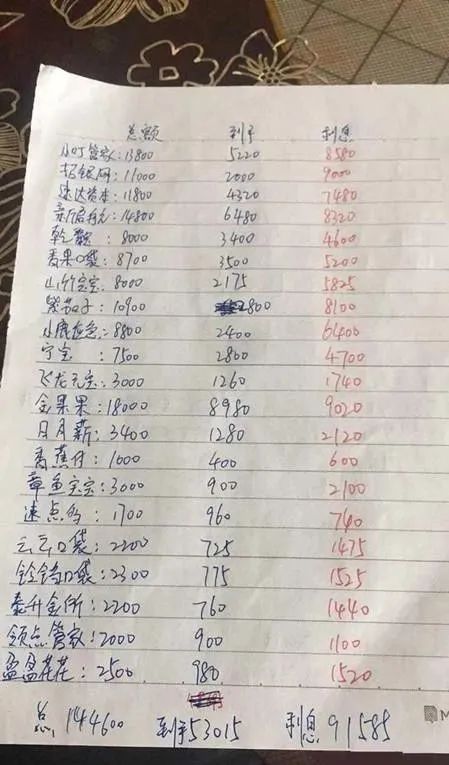 总额 到手 利息
小叮管家:13800 5220 8580
拓银网:11000 2000 9000
速达资本:11800 4320 7480
14800 6480 8320
8000 3400 4600
青果口袋:8700 3500 5200
山竹宝宝:8000 2175 5825
紫茄子:10900 2800 8100
小鹿应急:8800 2400 6400
宁宝:7500 2800 4700
飞龙元宝:3000 1260 1740
金果果:18000 8980 9020
日月薪:3400 1280 2120
香蕉仔:1000 400 600
章鱼宝宝:3000 900 2100
速点 :1700 960 740
云云口袋:2200 725 1475
铃铛口袋:2300 775 1525
泰升金所:2200 760 1440
领点管家:2000 900 1100
盈盈花花:2500 980 1520
总 144600 到手53015 利息91585